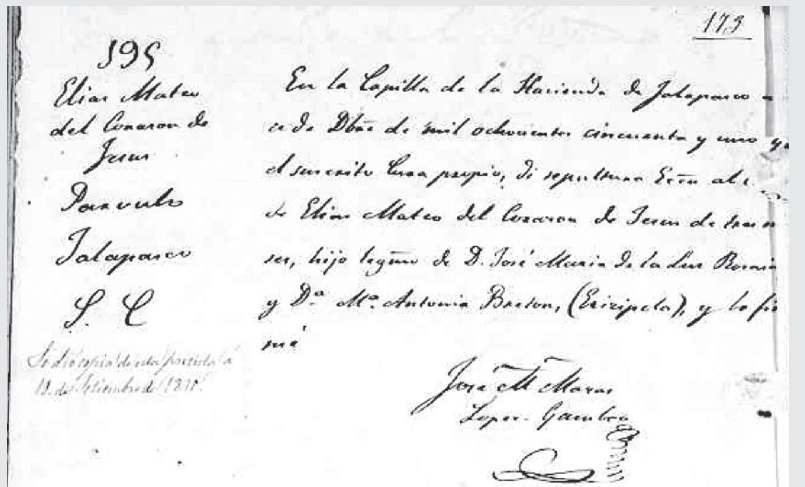 173
195
Elias Mateo
del Corazon de
Jesus
Parvulo
Jalapasco
S. C
Se dió copia de esta partida á
18 de Setiembre de
En la Capilla de la Hacienda de Jalapasco a
ce de Dbre de mil ochocientos cincuenta y uno y
el suscrito Cura propio, di sepultura Ecca al
de Elias Mateo del Corazon de Jesus de tres
ses, hijo legmo de D. José Maria de la Luz
y Dª Mª Antonia Breton, (Ericipela), y lo fir
mé
José M
Lopez